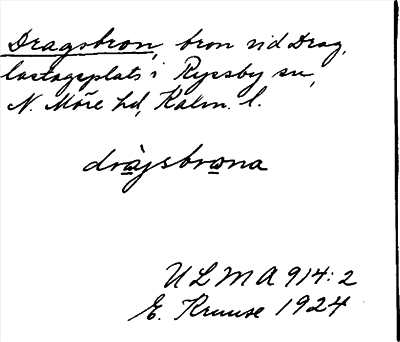 Dragsbron, bron vid Drag,
lastageplats i Ryssby sn,
N. Möre hd, Kalm. l.
dràjsbrona
ULMA 914:2
E. Kruuse 1924